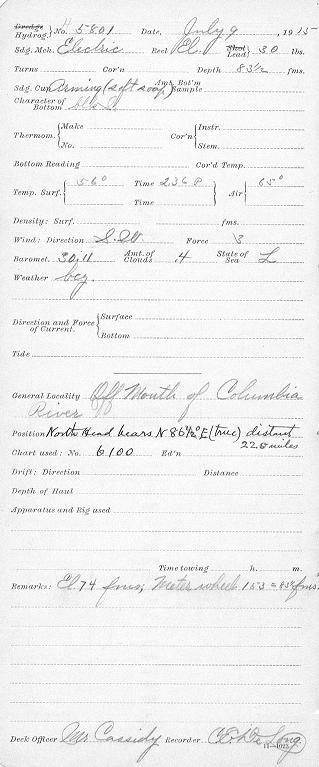 Dredge
Hydrog. } No. H 5801 Date, July 9, 1915
Sdg. Mch. Electric Reel El. Shot Lead } 30 lbs.
Turns Cor'n Depth 83½ fms.
Sdg. Cup Arming (soft soap) Amt. Bot'm Sample
Character of Bottom
Thermom. { Make Cor'n { Instr.
No. Stem.
Bottom Reading Cor'd Temp.
Temp. Surf. { 56° Time 2.36 P Air { 65°
Time
Density: Surf. fms.
Wind: Direction S.W. Force 3
Baromet. 30.11 Amt. of Clouds .4 State of Sea L
Weather bcg.
Direction and Force of Current. { Surface
Bottom
Tide
General Locality Off Mouth of Columbia
River
Position North Head bears N 86½° E (true) distant
22.5 miles
Chart used: No. 6100 Ed'n
Drift: Direction Distance
Depth of Haul
Apparatus and Rig used
Time towing h. m.
Remarks: El. 74 fms; Meter wheel 153 = 83½ fms.
Deck Officer Mr Cassidy Recorder De Long